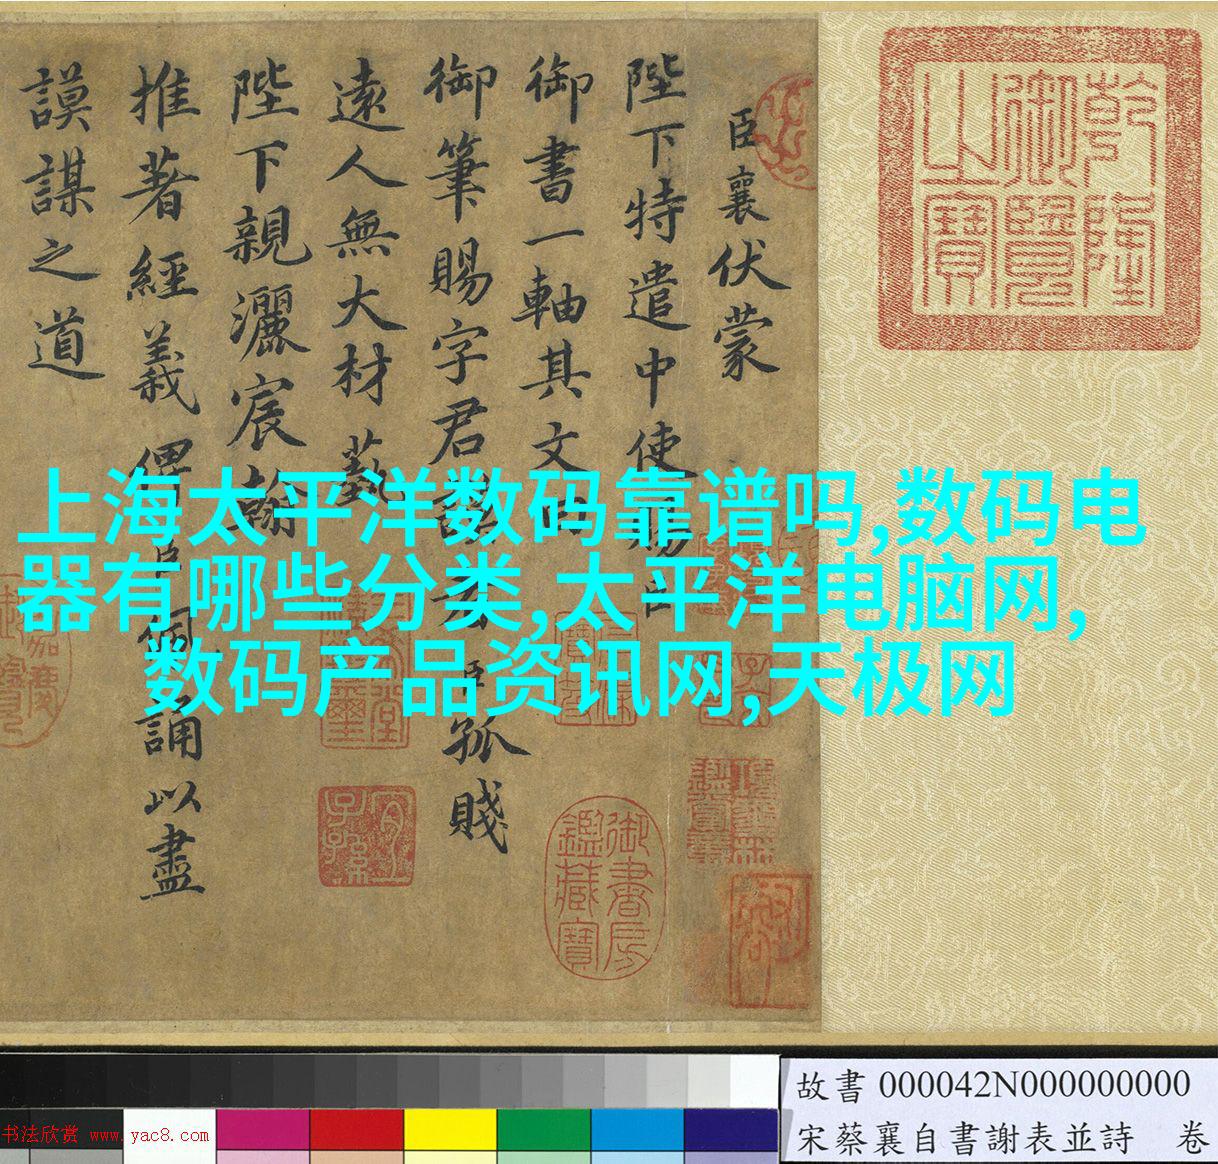 臣襄伏蒙
陛下特遣中使賜臣
御書一軸其文曰
御筆賜字君謨者臣孤賤
遠人無大材藝
陛下親灑宸翰
推著經義俾臣佩誦以盡
謨謀之道
乾隆
御覽
之寶
御書房
鑑藏寶
宜
子孫
上海太平洋数码靠谱吗,数码电
器有哪些分类,太平洋电脑网,
数码产品资讯网,天极网
故書 000042N000000000
宋蔡襄自書謝表並詩 卷
书法欣赏 www.yac8.com